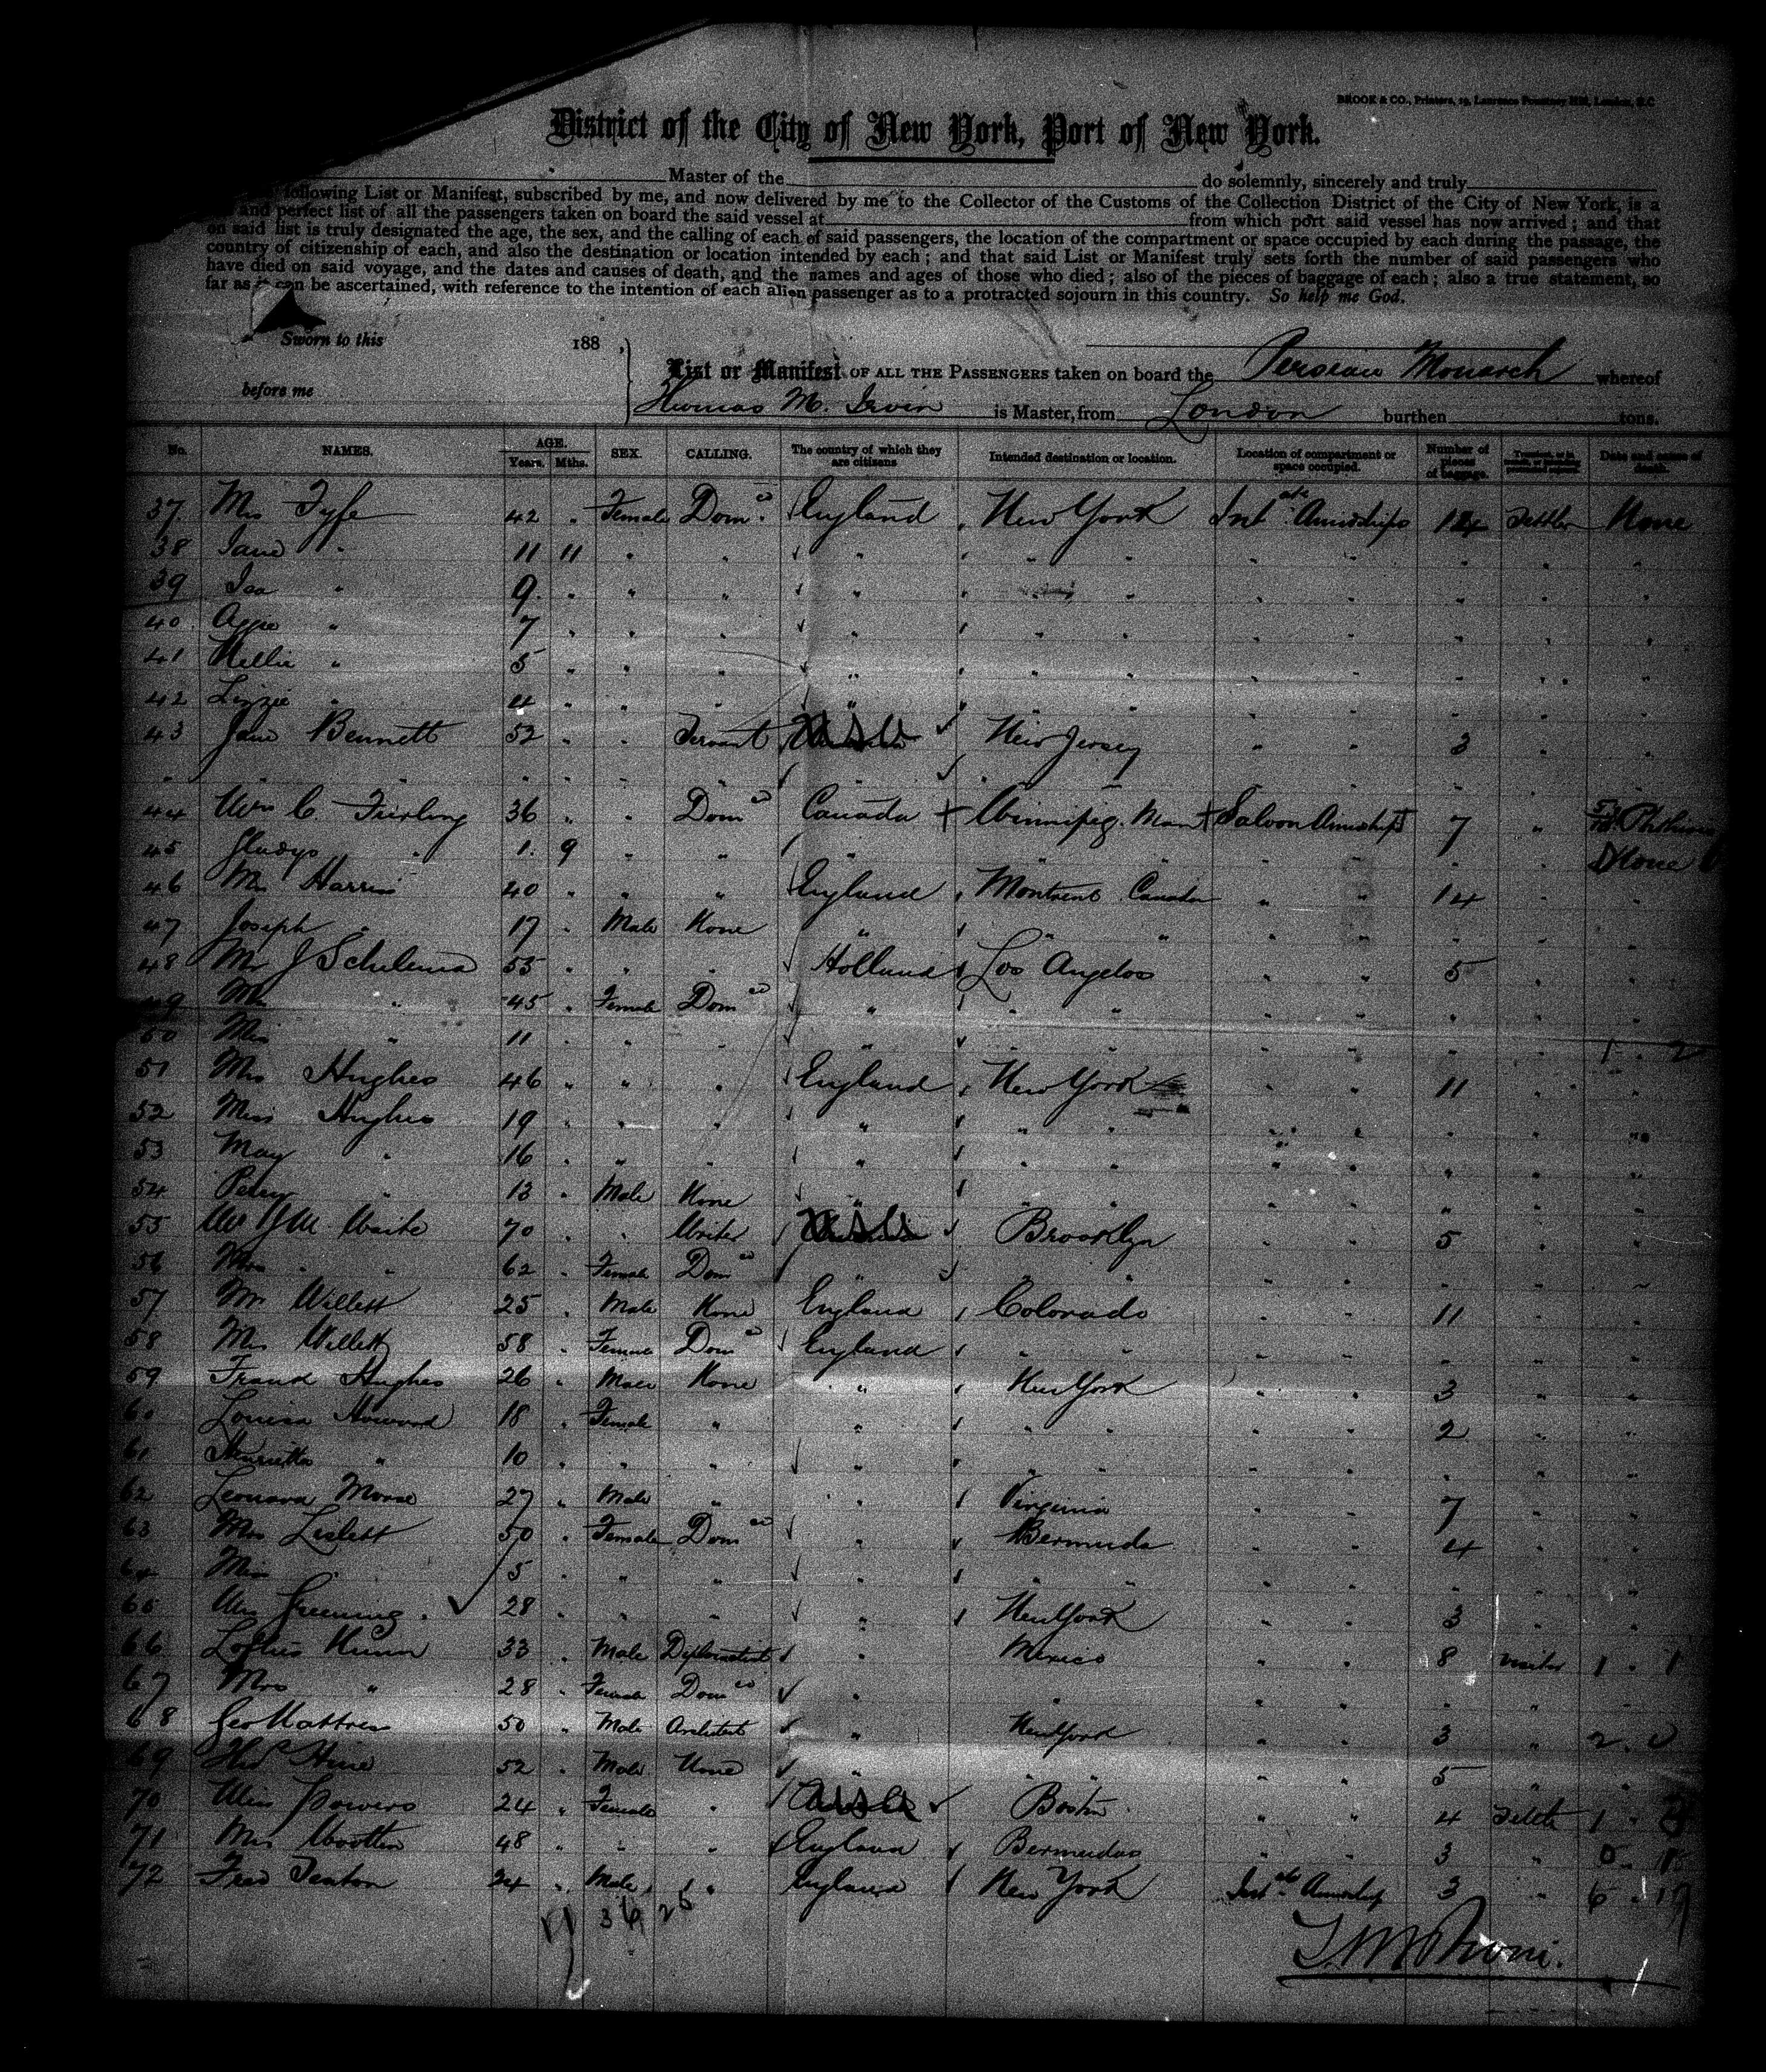 BROOK & CO., Printers, 19, Laurence Pountney Hill, London, E.C
District of the City of New York, Port of New York.
Master of the do solemnly, sincerely and truly
following List or Manifest, subscribed by me, and now delivered by me to the Collector of the Customs of the Collection District of the City of New York, is a
and perfect list of all the passengers taken on board the said vessel at from which port said vessel has now arrived; and that
on said list is truly designated the age, the sex, and the calling of each of said passengers, the location of the compartment or space occupied by each during the passage, the
country of citizenship of each, and also the destination or location intended by each; and that said List or Manifest truly sets forth the number of said passengers who
have died on said voyage, and the dates and causes of death, and the names and ages of those who died; also of the pieces of baggage of each; also a true statement, so
far as it can be ascertained, with reference to the intention of each alien passenger as to a protracted sojourn in this country. So help me God.
Sworn to this 188
before me
List or Manifest OF ALL THE PASSENGERS taken on board the Persian Monarch whereof
Thomas M. Irvin is Master, from London burthen tons.
No. NAMES. AGE. Years. Mths. SEX. CALLING. The country of which they are citizens Intended destination or location. Location of compartment or space occupied. Number of pieces of baggage. Date and cause of death.
37. Mrs Fyfe 42 " Female Dom. England New York Int. Amidships 14 Settler None
38 Jane " 11 11 " " " " " " " " " "
39 Isa " 9. " " " " " " " " " " "
40. Aggie " 7 " " " " " " " " " " "
41 Nellie " 5 " " " " " " " " " " "
42 Lizzie " 4 " " " " " " " " " " "
43 Jane Bennett 52 " " Servant U.S.A New Jersey " " 3 " "
44 C. Stirling 36 " " Dom Canada Winnipeg. Man Saloon Amidships 7 " Phthisis
45 Gladys " 1. 9 " " " " " " " None
46 Mrs Harris 40 " " " England Montreal Canada " " 14 " "
47 Joseph " 17 " Male None " " " " " " " "
48 Mr J Schulema 55 " " " Holland Los Angelos " " 5 " "
49 Mrs " 45 " Female Dom " " " " " " " "
50 Miss " 11 " " " " " " " " " 1 . 2
51 Mrs Hughes 46 " " " England New York " " 11 " "
52 Miss Hughes 19 " " " " " " " " " " "
53 May " 16 " " " " " " " " " " "
54 Percy " 13 " Male None " " " " " " " "
55 Waite 70 " " Writer U.S.A Brooklyn " " 5 " "
56 Mrs " 62 " Female Dom " " " " " " "
57 Mr Willett 25 " Male None England Colorado " " 11 " "
58 Mrs Willett 58 " Female Dom England " " " " " " "
59 Frank Hughes 26 " Male None " New York " " 3 " "
60 Louisa Howard 18 " Female " " " " " " 2 " "
61 Henrietta " 10 " " " " " " " " " " "
62 Leonard Morse 27 " Male " " Virginia " " 7 " "
63 Mrs Lislett 50 " Female Dom " Bermuda " " 4 " "
64 Miss " 5 " " " " " " " " " " "
65 Greening. 28 " " " " New York " " 3 " "
66 Loftus 33 " Male Diplomatist " Mexico " " 8 visitor 1 . 1
67 Mrs " 28 " Female Dom " " " " " " "
68 Geo 50 " Male Architect " New York " " 3 " 2 .
69 Hine 52 " Male None " " " " " 5 " "
70 Miss Powers 24 " Female " U.S.A Boston " " 4 1 "
71 Mrs Wootten 48 " " " England Bermudas " " 3 "
72 Fred Fenton 24 " Male " England New York Int. Amidship 3 "
36 25